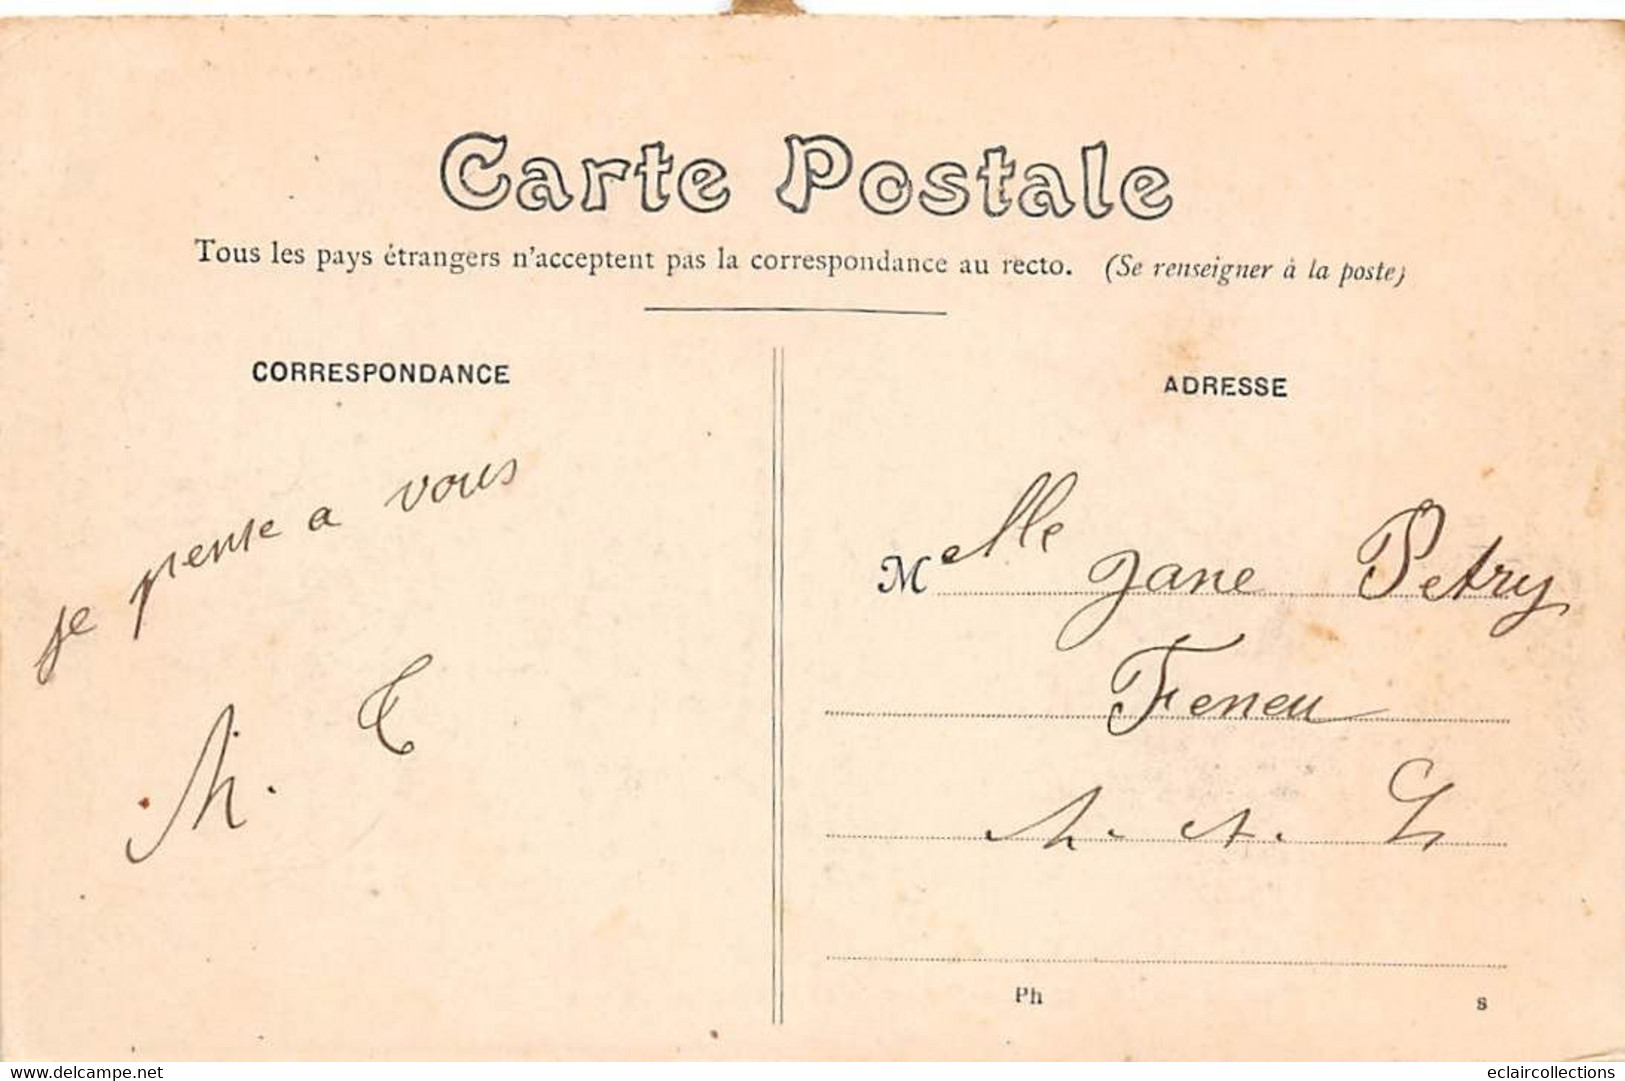 Carte Postale
Tous les pays étrangers n'acceptent pas la correspondance au recto. (Se renseigner à la poste)
CORRESPONDANCE
je pense a vous
M. T
ADRESSE
Melle Jane Petry
Feneu
M. et. L
Ph
s
www.delcampe.net
eclaircollections